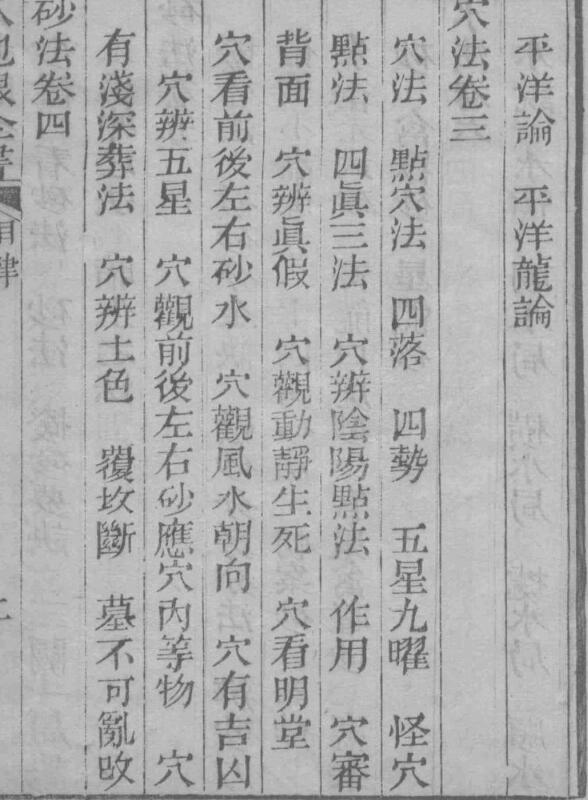 平洋論　平洋龍論
穴法卷三
穴法　點穴法　四落　四勢　五星九曜　怪穴
點法　四眞三法　穴辨陰陽點法　作用　穴審
背面　穴辨眞假　穴觀動靜生死　穴看明堂
穴看前後左右砂水　穴觀風水朝向　穴有吉凶
穴辨五星　穴觀前後左右砂應穴內等物　穴
有淺深葬法　穴辨土色　覆坟斷　墓不可亂改
砂法卷四